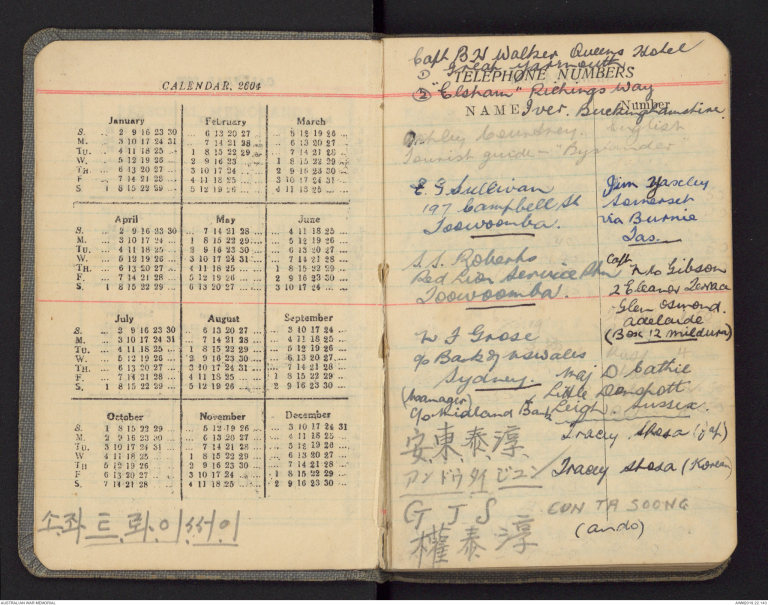 CALENDAR, 2604
January
February
March
S. .. 2 9 16 23 30
M. .. 3 10 17 24 31
Tu. .. 4 11 18 25 ..
W. .. 5 12 19 26 ..
Th. .. 6 13 20 27 ..
F. .. 7 14 21 28 ..
S. 1 8 15 22 29 ..
.. 6 13 20 27 ..
.. 7 14 21 28 ..
1 8 15 22 29 ..
2 9 16 23 ..
3 10 17 24 ..
4 11 18 25 ..
5 12 19 26 ..
.. 5 12 19 26 ..
.. 6 13 20 27 ..
.. 7 14 21 28 ..
1 8 15 22 29 ..
2 9 16 23 30 ..
3 10 17 24 31 ..
4 11 18 25 ..
April
May
June
S. .. 2 9 16 23 30
M. .. 3 10 17 24 ..
Tu. .. 4 11 18 25 ..
W. .. 5 12 19 26 ..
Th. .. 6 13 20 27 ..
F. .. 7 14 21 28 ..
S. 1 8 15 22 29 ..
.. 7 14 21 28 ..
1 8 15 22 29 ..
2 9 16 23 30 ..
3 10 17 24 31 ..
4 11 18 25 ..
5 12 19 26 ..
6 13 20 27 ..
.. 4 11 18 25 ..
.. 5 12 19 26 ..
.. 6 13 20 27 ..
.. 7 14 21 28 ..
1 8 15 22 29 ..
2 9 16 23 30 ..
3 10 17 24 ..
July
August
September
S. .. 2 9 16 23 30
M. .. 3 10 17 24 31
Tu. .. 4 11 18 25 ..
W. .. 5 12 19 26 ..
Th. .. 6 13 20 27 ..
F. .. 7 14 21 28 ..
S. 1 8 15 22 29 ..
.. 6 13 20 27 ..
.. 7 14 21 28 ..
1 8 15 22 29 ..
2 9 16 23 30 ..
3 10 17 24 31 ..
4 11 18 25 ..
5 12 19 26 ..
.. 3 10 17 24 ..
.. 4 11 18 25 ..
.. 5 12 19 26 ..
.. 6 13 20 27 ..
.. 7 14 21 28 ..
1 8 15 22 29 ..
2 9 16 23 30 ..
October
November
December
S. 1 8 15 22 29 ..
M. 2 9 16 23 30 ..
Tu. 3 10 17 24 31 ..
W 4 11 18 25 ..
Th 5 12 19 26 ..
F. 6 13 20 27 ..
S. 7 14 21 28 ..
.. 5 12 19 26 ..
.. 6 13 20 27 ..
.. 7 14 21 28 ..
1 8 15 22 29 ..
2 9 16 23 30 ..
3 10 17 24 ..
4 11 18 25 ..
.. 3 10 17 24 31
.. 4 11 18 25 ..
.. 5 12 19 26 ..
.. 6 13 20 27 ..
.. 7 14 21 28 ..
1 8 15 22 29 ..
2 9 16 23 30 ..
소좌 트롸이써이
Capt B H Walker Queens Hotel
① Great Yarmouth
TELEPHONE NUMBERS
② "Elsham" Richings Way
NAME
Number
Iver. Buckinghamshire.
Ashley Courtney. English
Tourist guide - "Byswinder"
E G Sullivan
197 Campbell St
Toowoomba.
Jim Yaxley
Somerset
Via Burnie
Tas.
S. S. Roberts
Red Lion Service Stn
Toowoomba.
Capt
Gibson
2 Eleanor Terrace
Glen Osmond.
Adelaide
(Box 12 Mildura)
W F Grose
c/o Bank of NSWales
Sydney.
(manager)
c/o Midland Bank
Maj D Cathie
Little
Leigh. Sussex.
安東泰淳
アンドウタイジュン
Tracey Shosa (Jap)
Tracey Shosa (Korean)
G J S
權泰淳
CUN TA SOONG
(Ando)
AUSTRALIAN WAR MEMORIAL